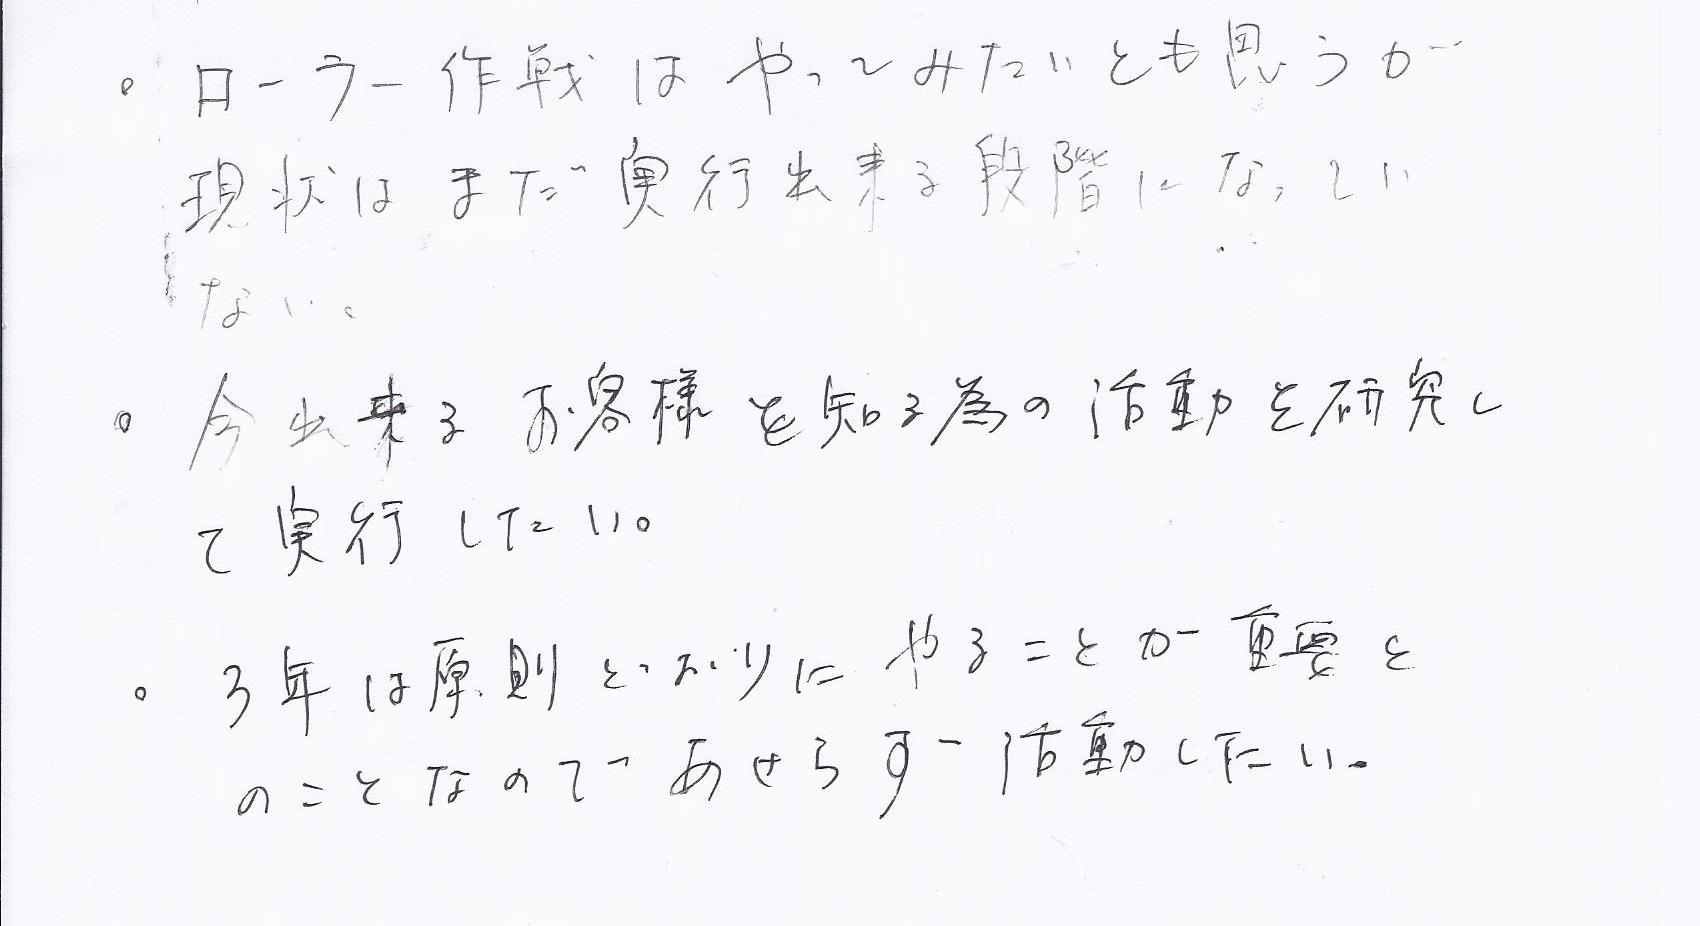 。ローラー作戦はやってみたいとも思うが
現状はまだ実行出来る段階になってい
ない。
。今出来るお客様を知る為の活動を研究し
て実行したい。
。3年は原則どおりにやることが重要と
のことなのであせらず活動したい。